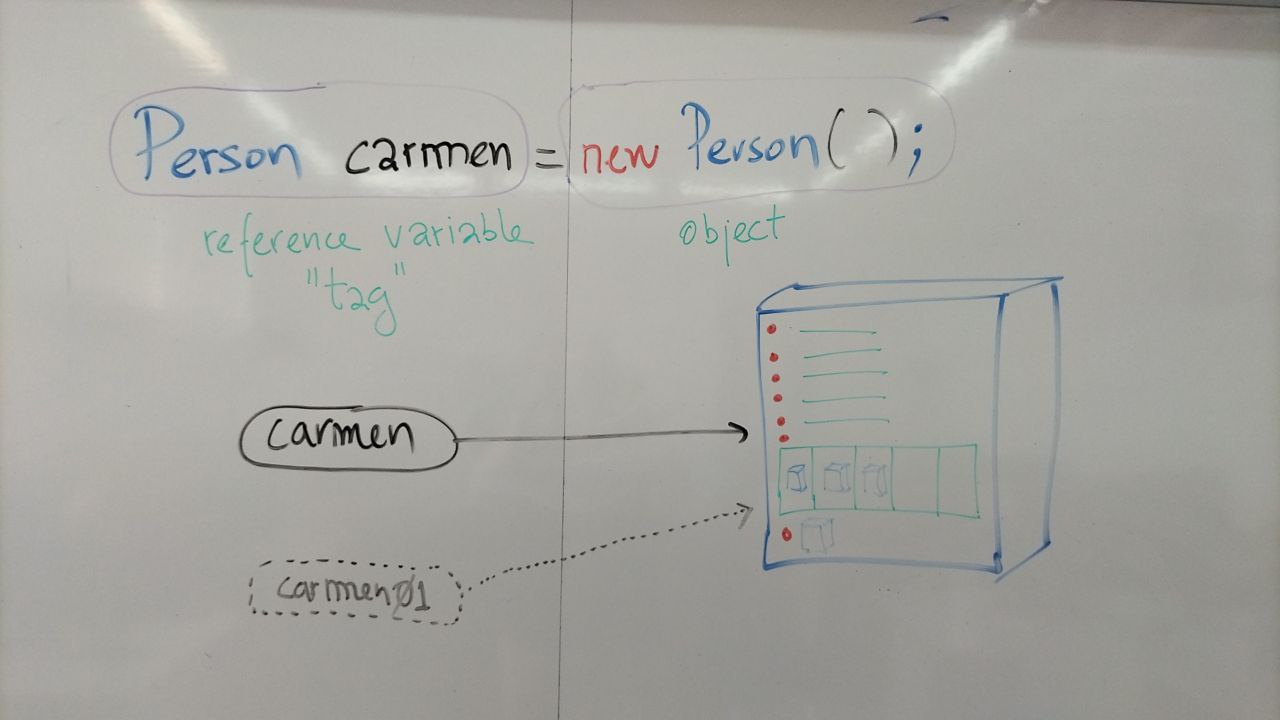 Person carmen = new Person();
reference variable
"tag"
object
carmen
carmen01